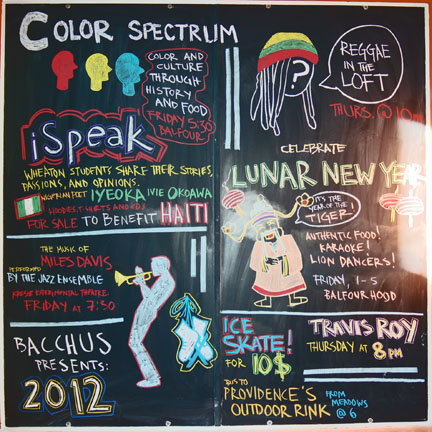 COLOR SPECTRUM
COLOR AND
CULTURE
THROUGH
HISTORY
AND FOOD
FRIDAY 5:30
BALFOUR
iSpeak
WHEATON STUDENTS SHARE THEIR STORIES,
PASSIONS, AND OPINIONS.
POET IYEOKA IVIE OKOAWA
HOODIES, T-SHIRTS AND
FOR SALE TO BENEFIT HAITI
THE MUSIC OF
MILES DAVIS
PERFORMED
BY THE JAZZ ENSEMBLE
KRESGE EXPERIMENTAL THEATRE
FRIDAY AT 7:30
BACCHUS
PRESENTS:
2012
?
REGGAE
IN THE
LOFT
THURS. @ 10PM
CELEBRATE
LUNAR NEW YEAR
IT'S THE
YEAR OF THE
TIGER!
AUTHENTIC FOOD!
KARAOKE!
LION DANCERS!
FRIDAY, 1-5
BALFOUR HOOD
ICE
SKATE!
FOR 10$
BUS TO
PROVIDENCE'S
OUTDOOR RINK
FROM
MEADOWS
@ 6
TRAVIS ROY
THURSDAY AT
8PM